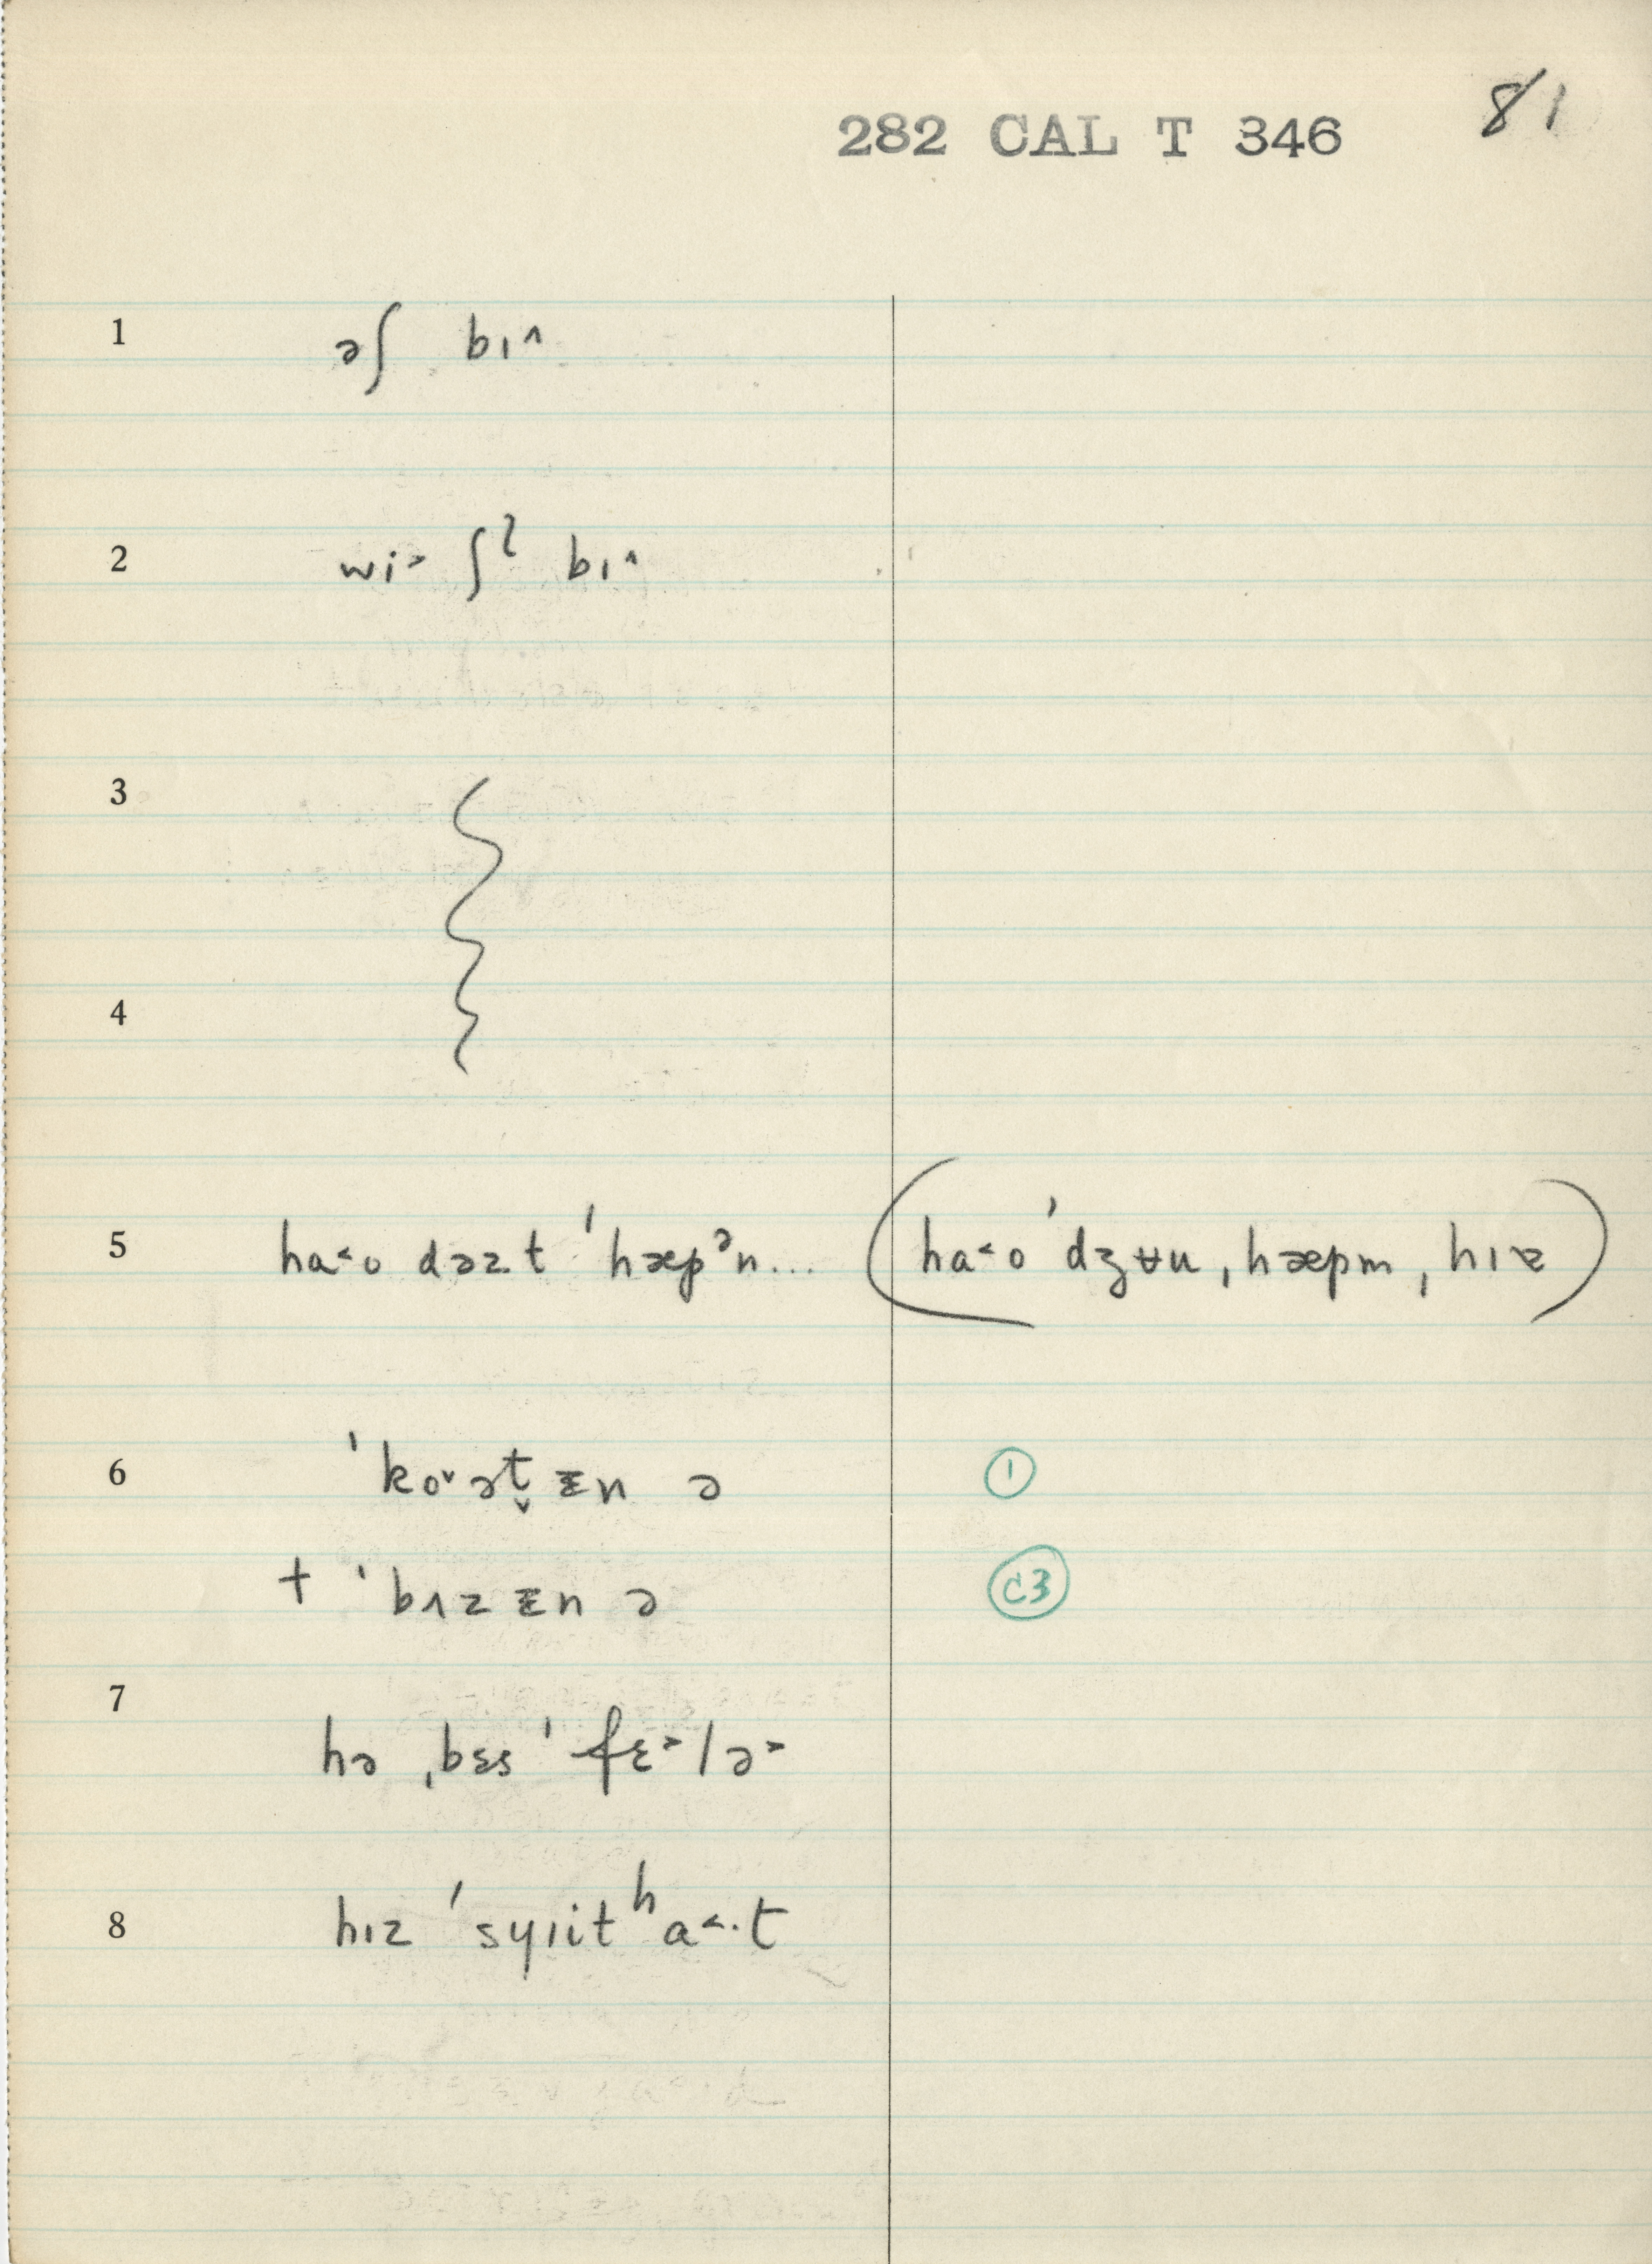 81
282 CAL T 346
1 əʃ bɪ^
2 wi˃ ʃˀ bɪ^
3
4
5 ha˂o dəzt ˈhæpᵊn... (ha˂o ˈdʒʉu, hæpm, hɪɐ)
6 ˈko˅ət̬ ᵻn ə ①
+ ˈbɪz ᵻn ə C3
7 hə ˌbɛs ˈfɛ˃lə˃
8 hɪz ˈsyɪitʰa˂·t